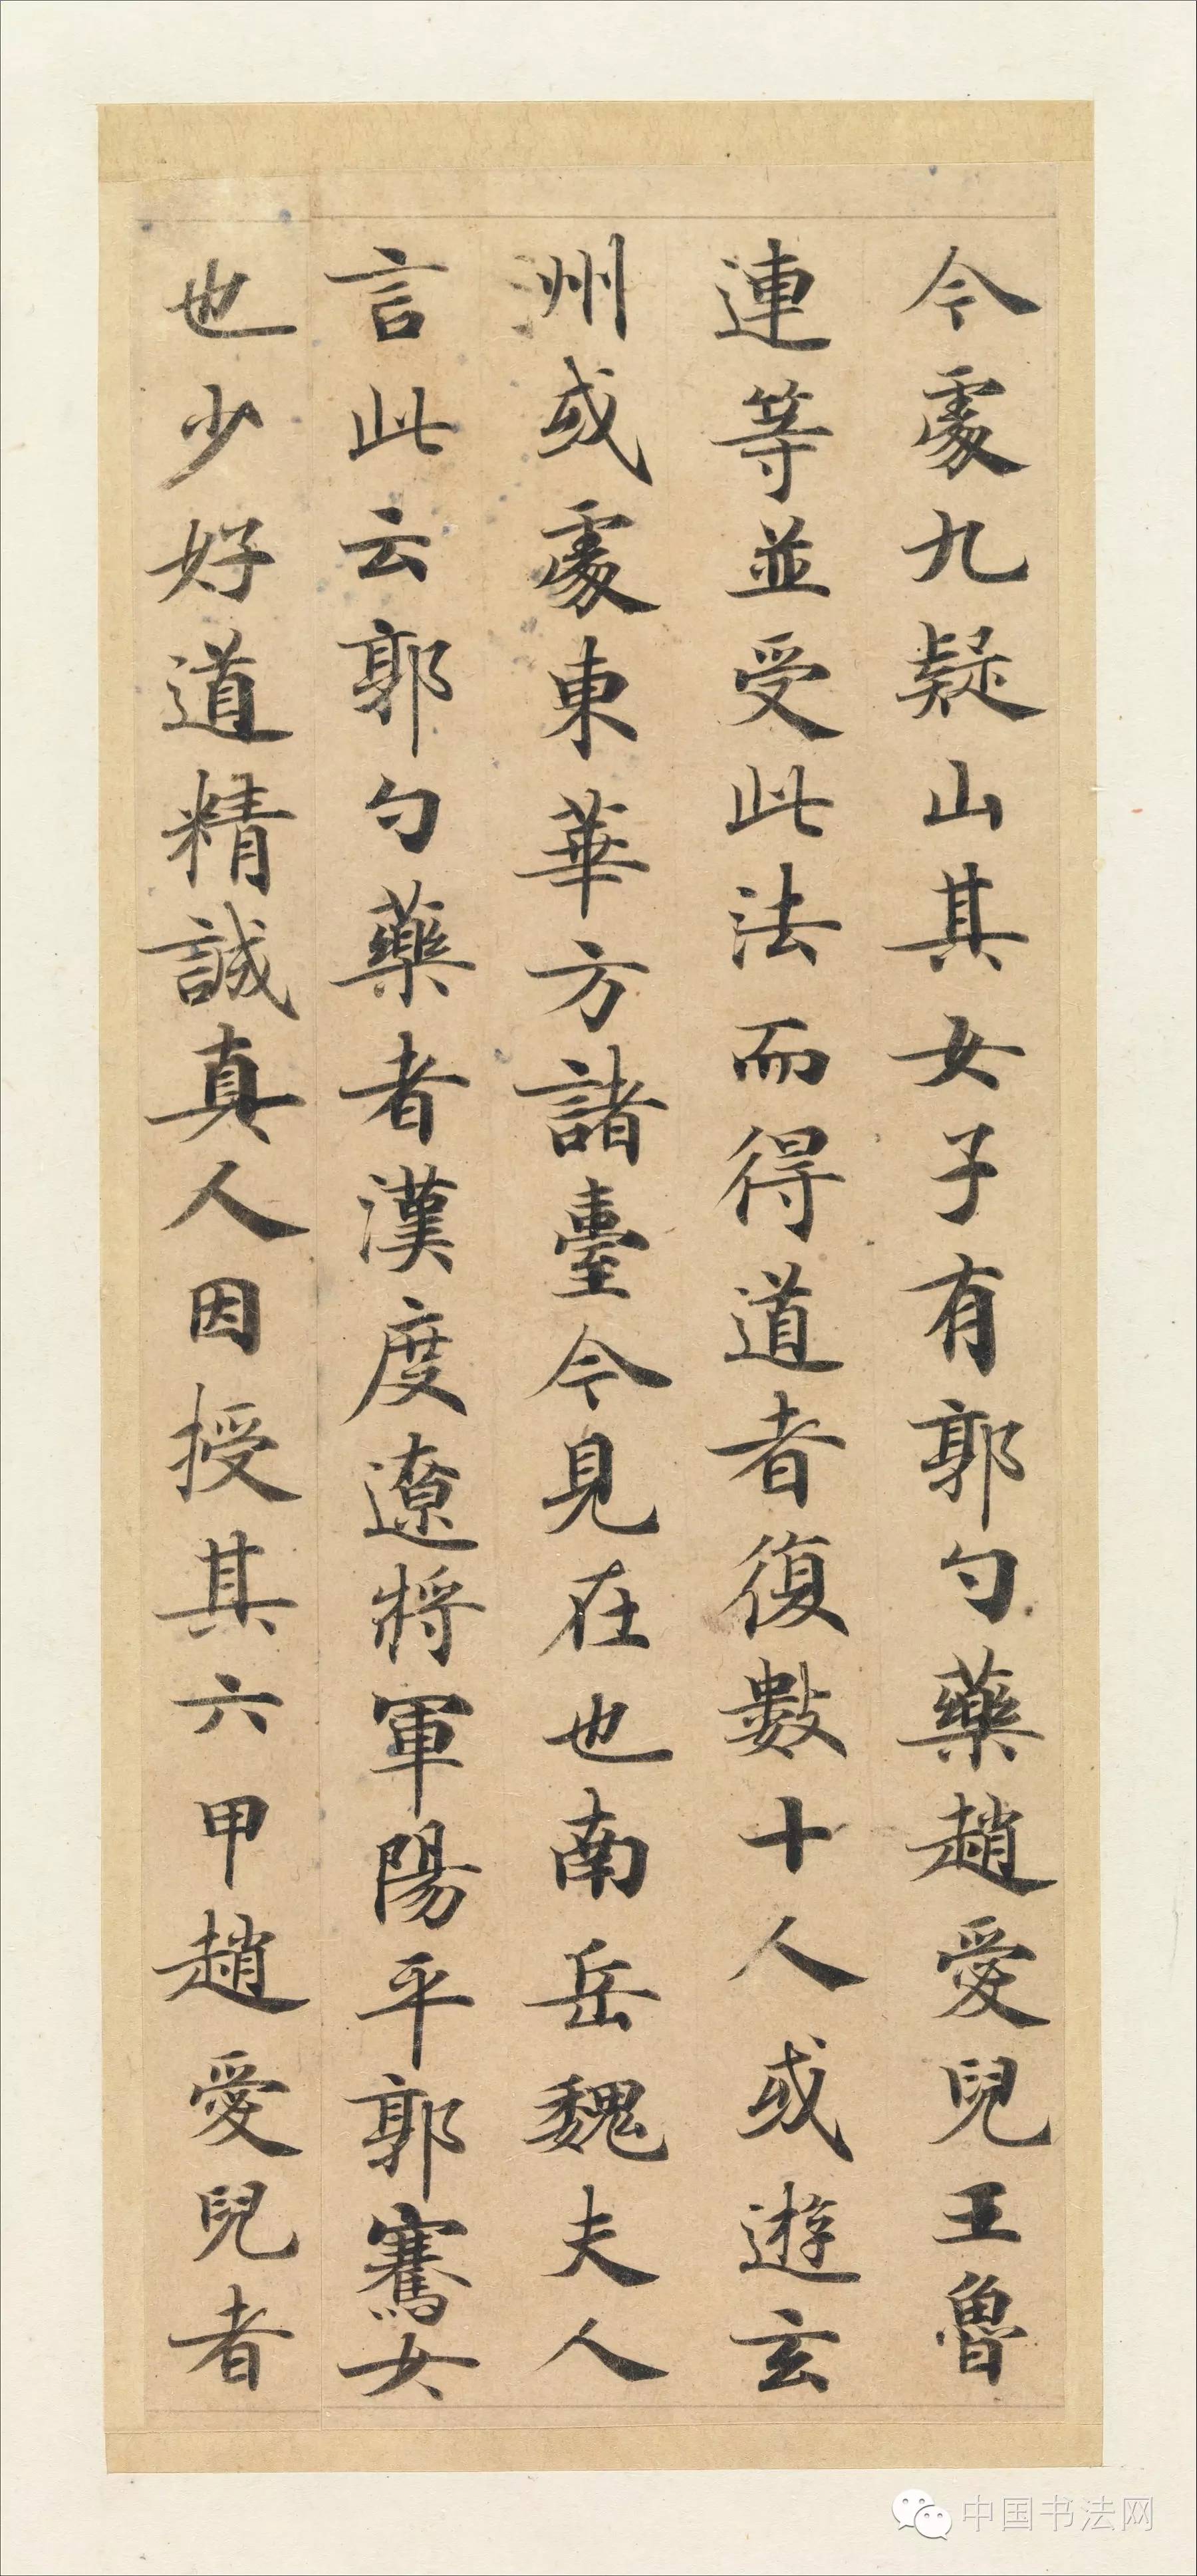 今處九疑山其女子有郭勺藥趙愛兒王魯
連等並受此法而得道者復數十人或遊玄
洲或處東華方諸臺今見在也南岳魏夫人
言此云郭勺藥者漢度遼將軍陽平郭騫女
也少好道精誠真人因授其六甲趙愛兒者
中国书法网